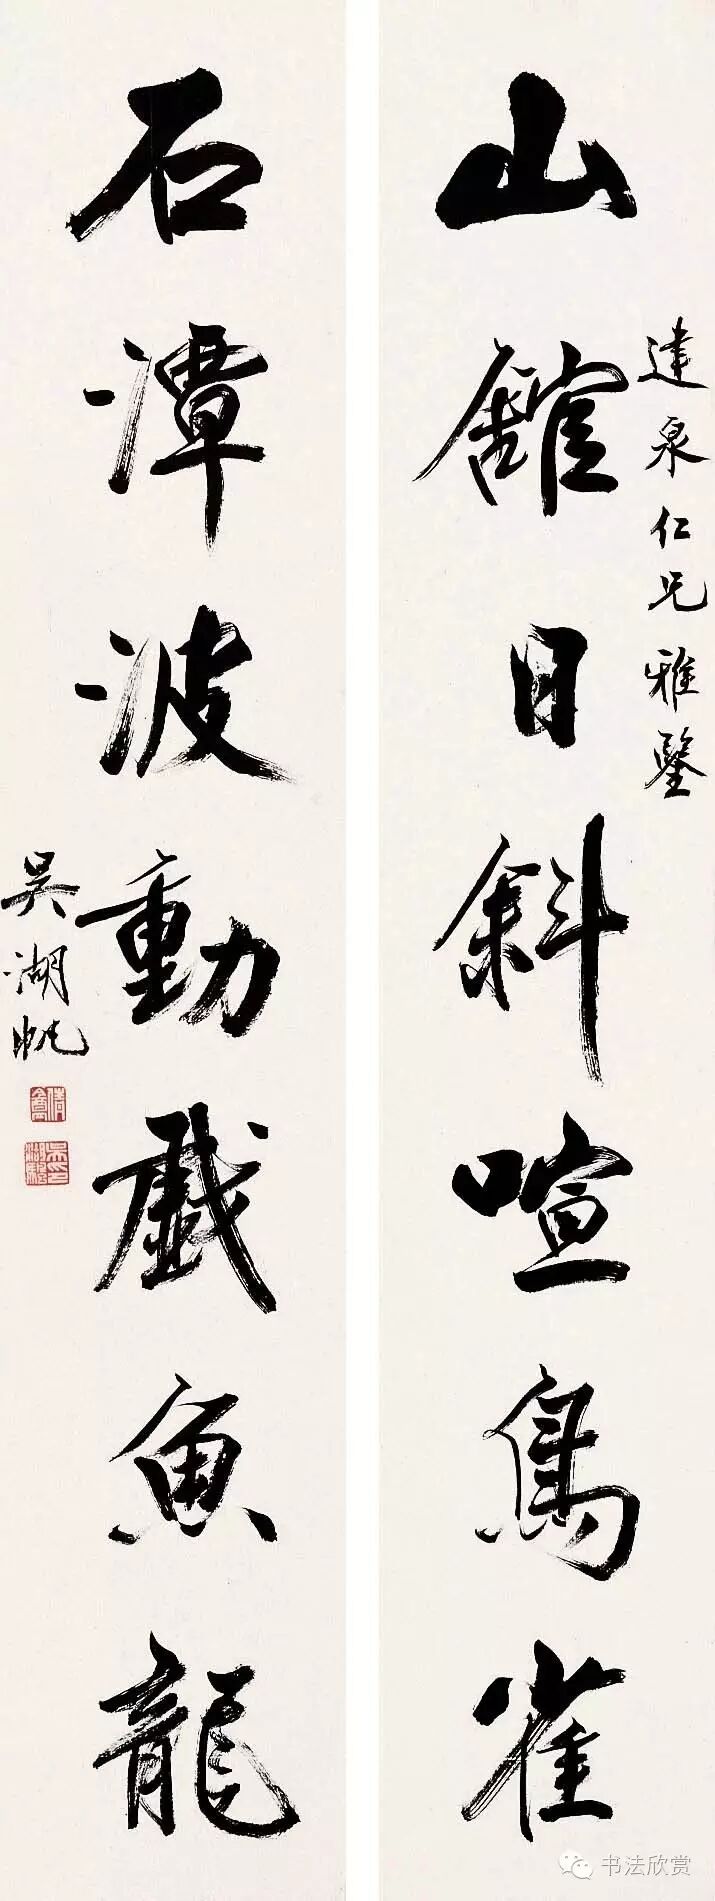 建泉仁兄雅鑒
山舘日斜喧鳥雀
石潭波動戲魚龍
吳湖帆
倩盦
书法欣赏